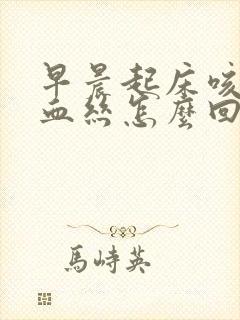 早晨起床咳
血絲怎麼回
馬峙英